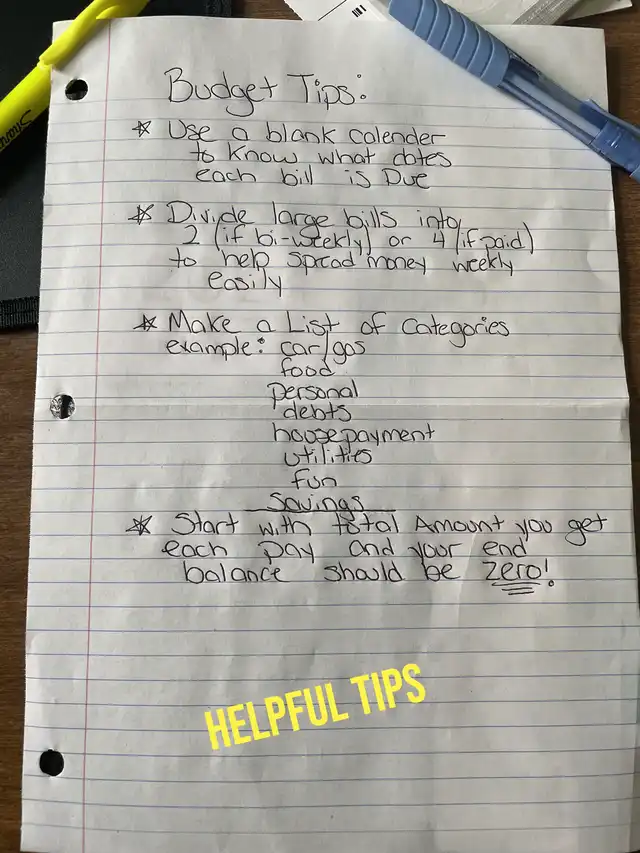 Budget Tips:
* Use a blank calender
to know what dates
each bill is Due
* Divide large bills into
2 (if bi-weekly) or 4 (if paid)
to help spread money weekly
easily
* Make a List of categories
example: car/gas
food
personal
debts
house payment
utilities
fun
Savings
* Start with total Amount you get
each pay and your end
balance should be zero!
HELPFUL TIPS